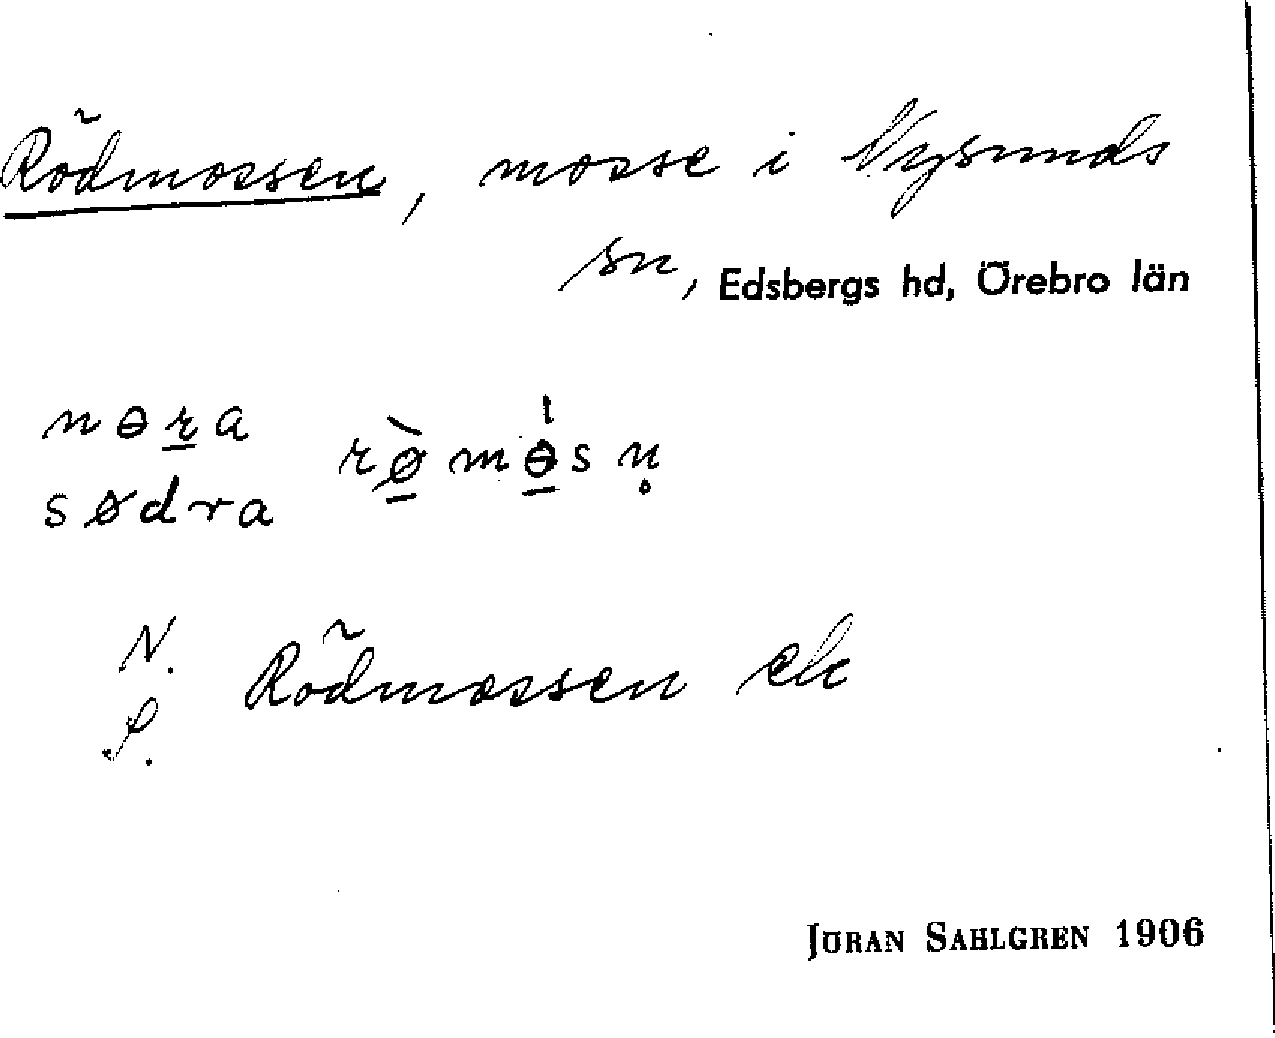 Rödmossen, mosse i Nysunds
sn, Edsbergs hd, Örebro län
nɵra
södra rø̀mɵ́sn̥
N.
S. Rödmossen ek
JÖRAN SAHLGREN 1906